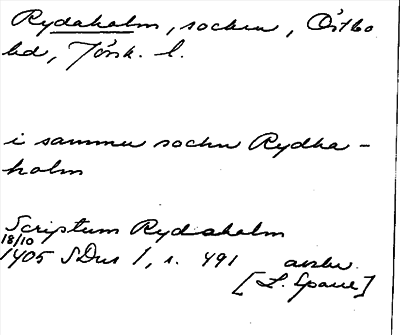 Rydaholm, socken, Östbo
hd, Jönk. l.
i samma socken Rydha-
holm
Scriptum Rydaholm
18/10
1405 SDns 1, s. 491 avskr.
[L. Sparre]